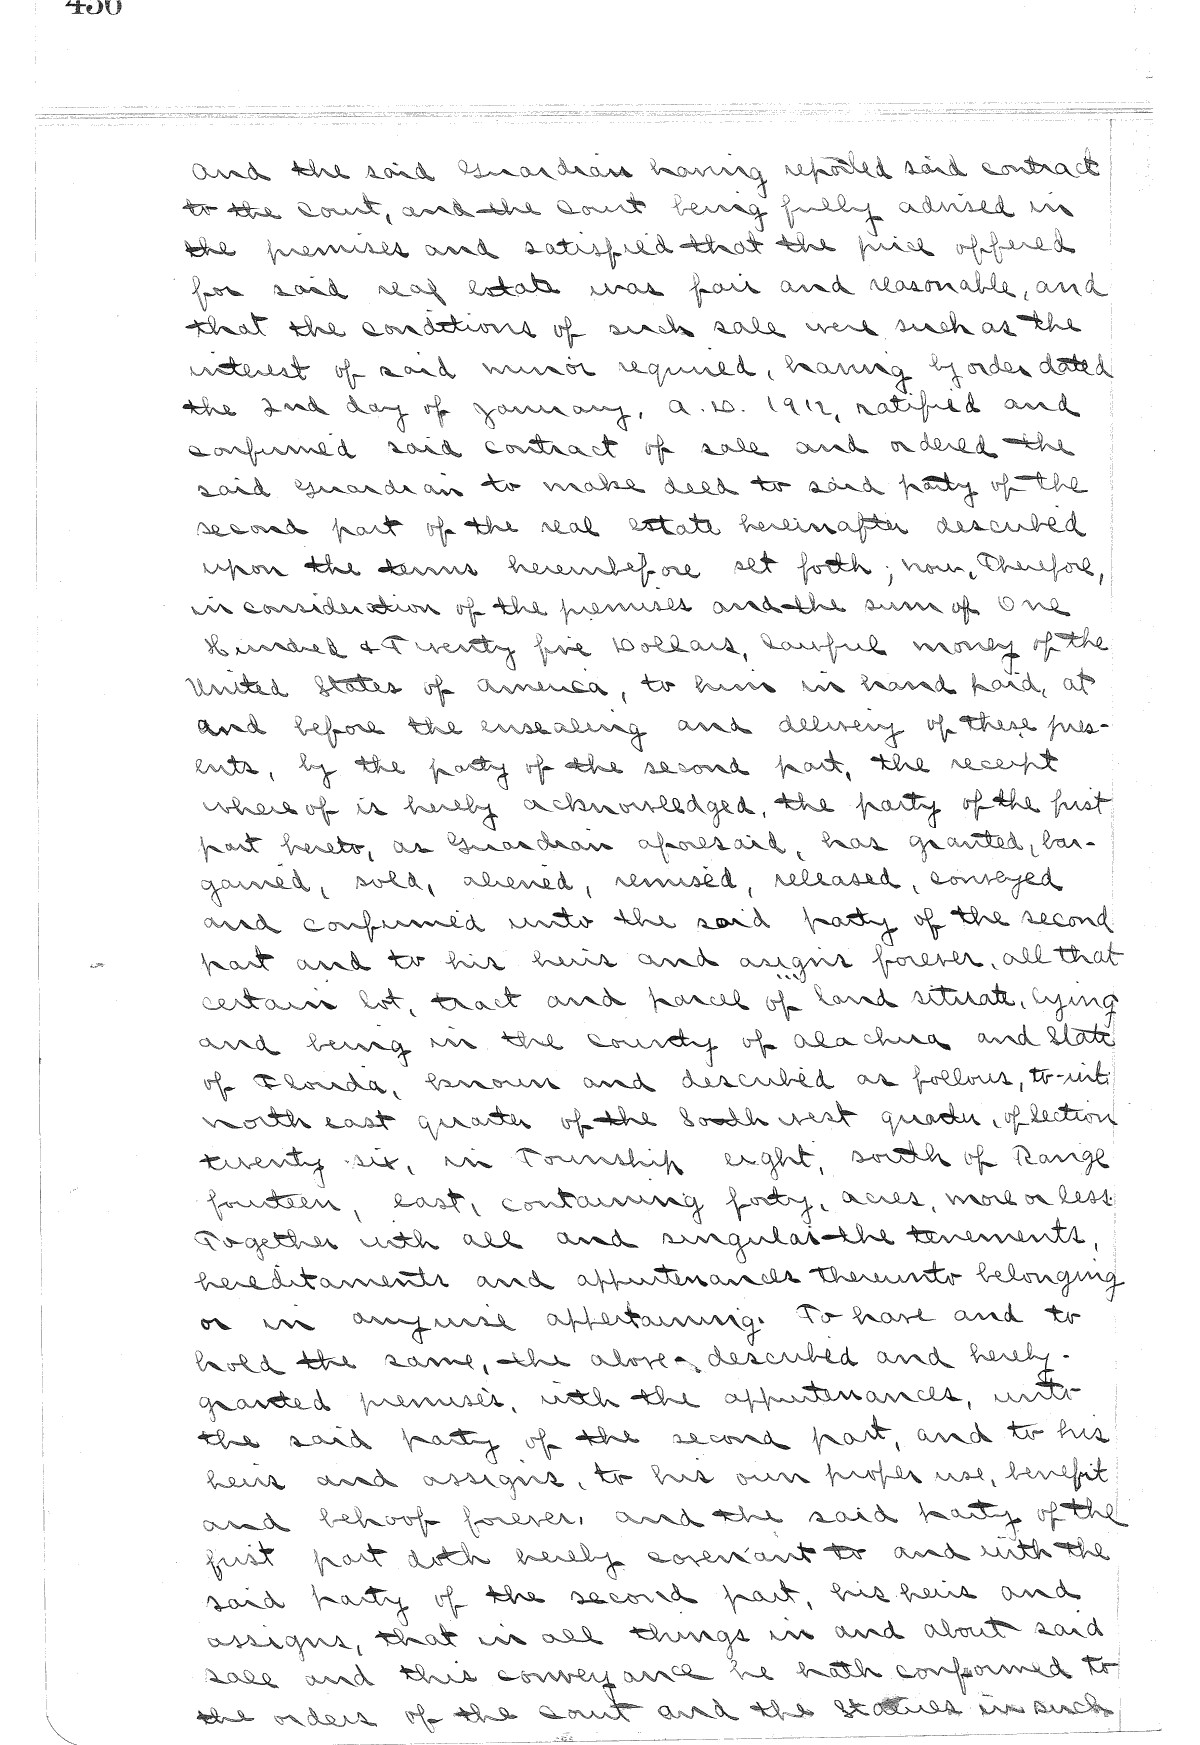 and the said Guardian having reported said contract
to the court, and the court being fully advised in
the premises and satisfied that the price offered
for said real estate was fair and reasonable, and
that the conditions of such sale were such as the
interest of said minor required, having by order dated
the 2nd day of January, A.D. 1912, ratified and
confirmed said contract of sale and ordered the
said Guardian to make deed to said party of the
second part of the real estate hereinafter described
upon the terms hereinbefore set forth; now, Therefore,
in consideration of the premises and the sum of One
Hundred & Twenty five Dollars, lawful money of the
United States of america, to him in hand paid, at
and before the ensealing and delivery of these pres-
ents, by the party of the second part, the receipt
where of is hereby acknowledged, the party of the first
part hereto, as Guardian aforesaid, has granted, bar-
gained, sold, aliened, remised, released, conveyed
and confirmed unto the said party of the second
part and to his heirs and assigns forever, all that
certain lot, tract and parcel of land situate, lying
and being in the county of alachua and State
of Florida, known and described as follows, to-wit:
north east quarter of the South west quarter, of Section
twenty six, in Township eight, south of Range
fourteen, east, containing forty, acres, more or less.
Together with all and singular the tenements,
hereditaments and appurtenances thereunto belonging
or in anywise appertaining. To have and to
hold the same, the above-described and hereby-
granted premises, with the appurtenances, unto
the said party of the second part, and to his
heirs and assigns, to his own proper use, benefit
and behoof forever, and the said party of the
first part doth hereby covenant to and with the
said party of the second part, his heirs and
assigns, that in all things in and about said
sale and this conveyance he hath conformed to
the orders of the court and the Statues in such